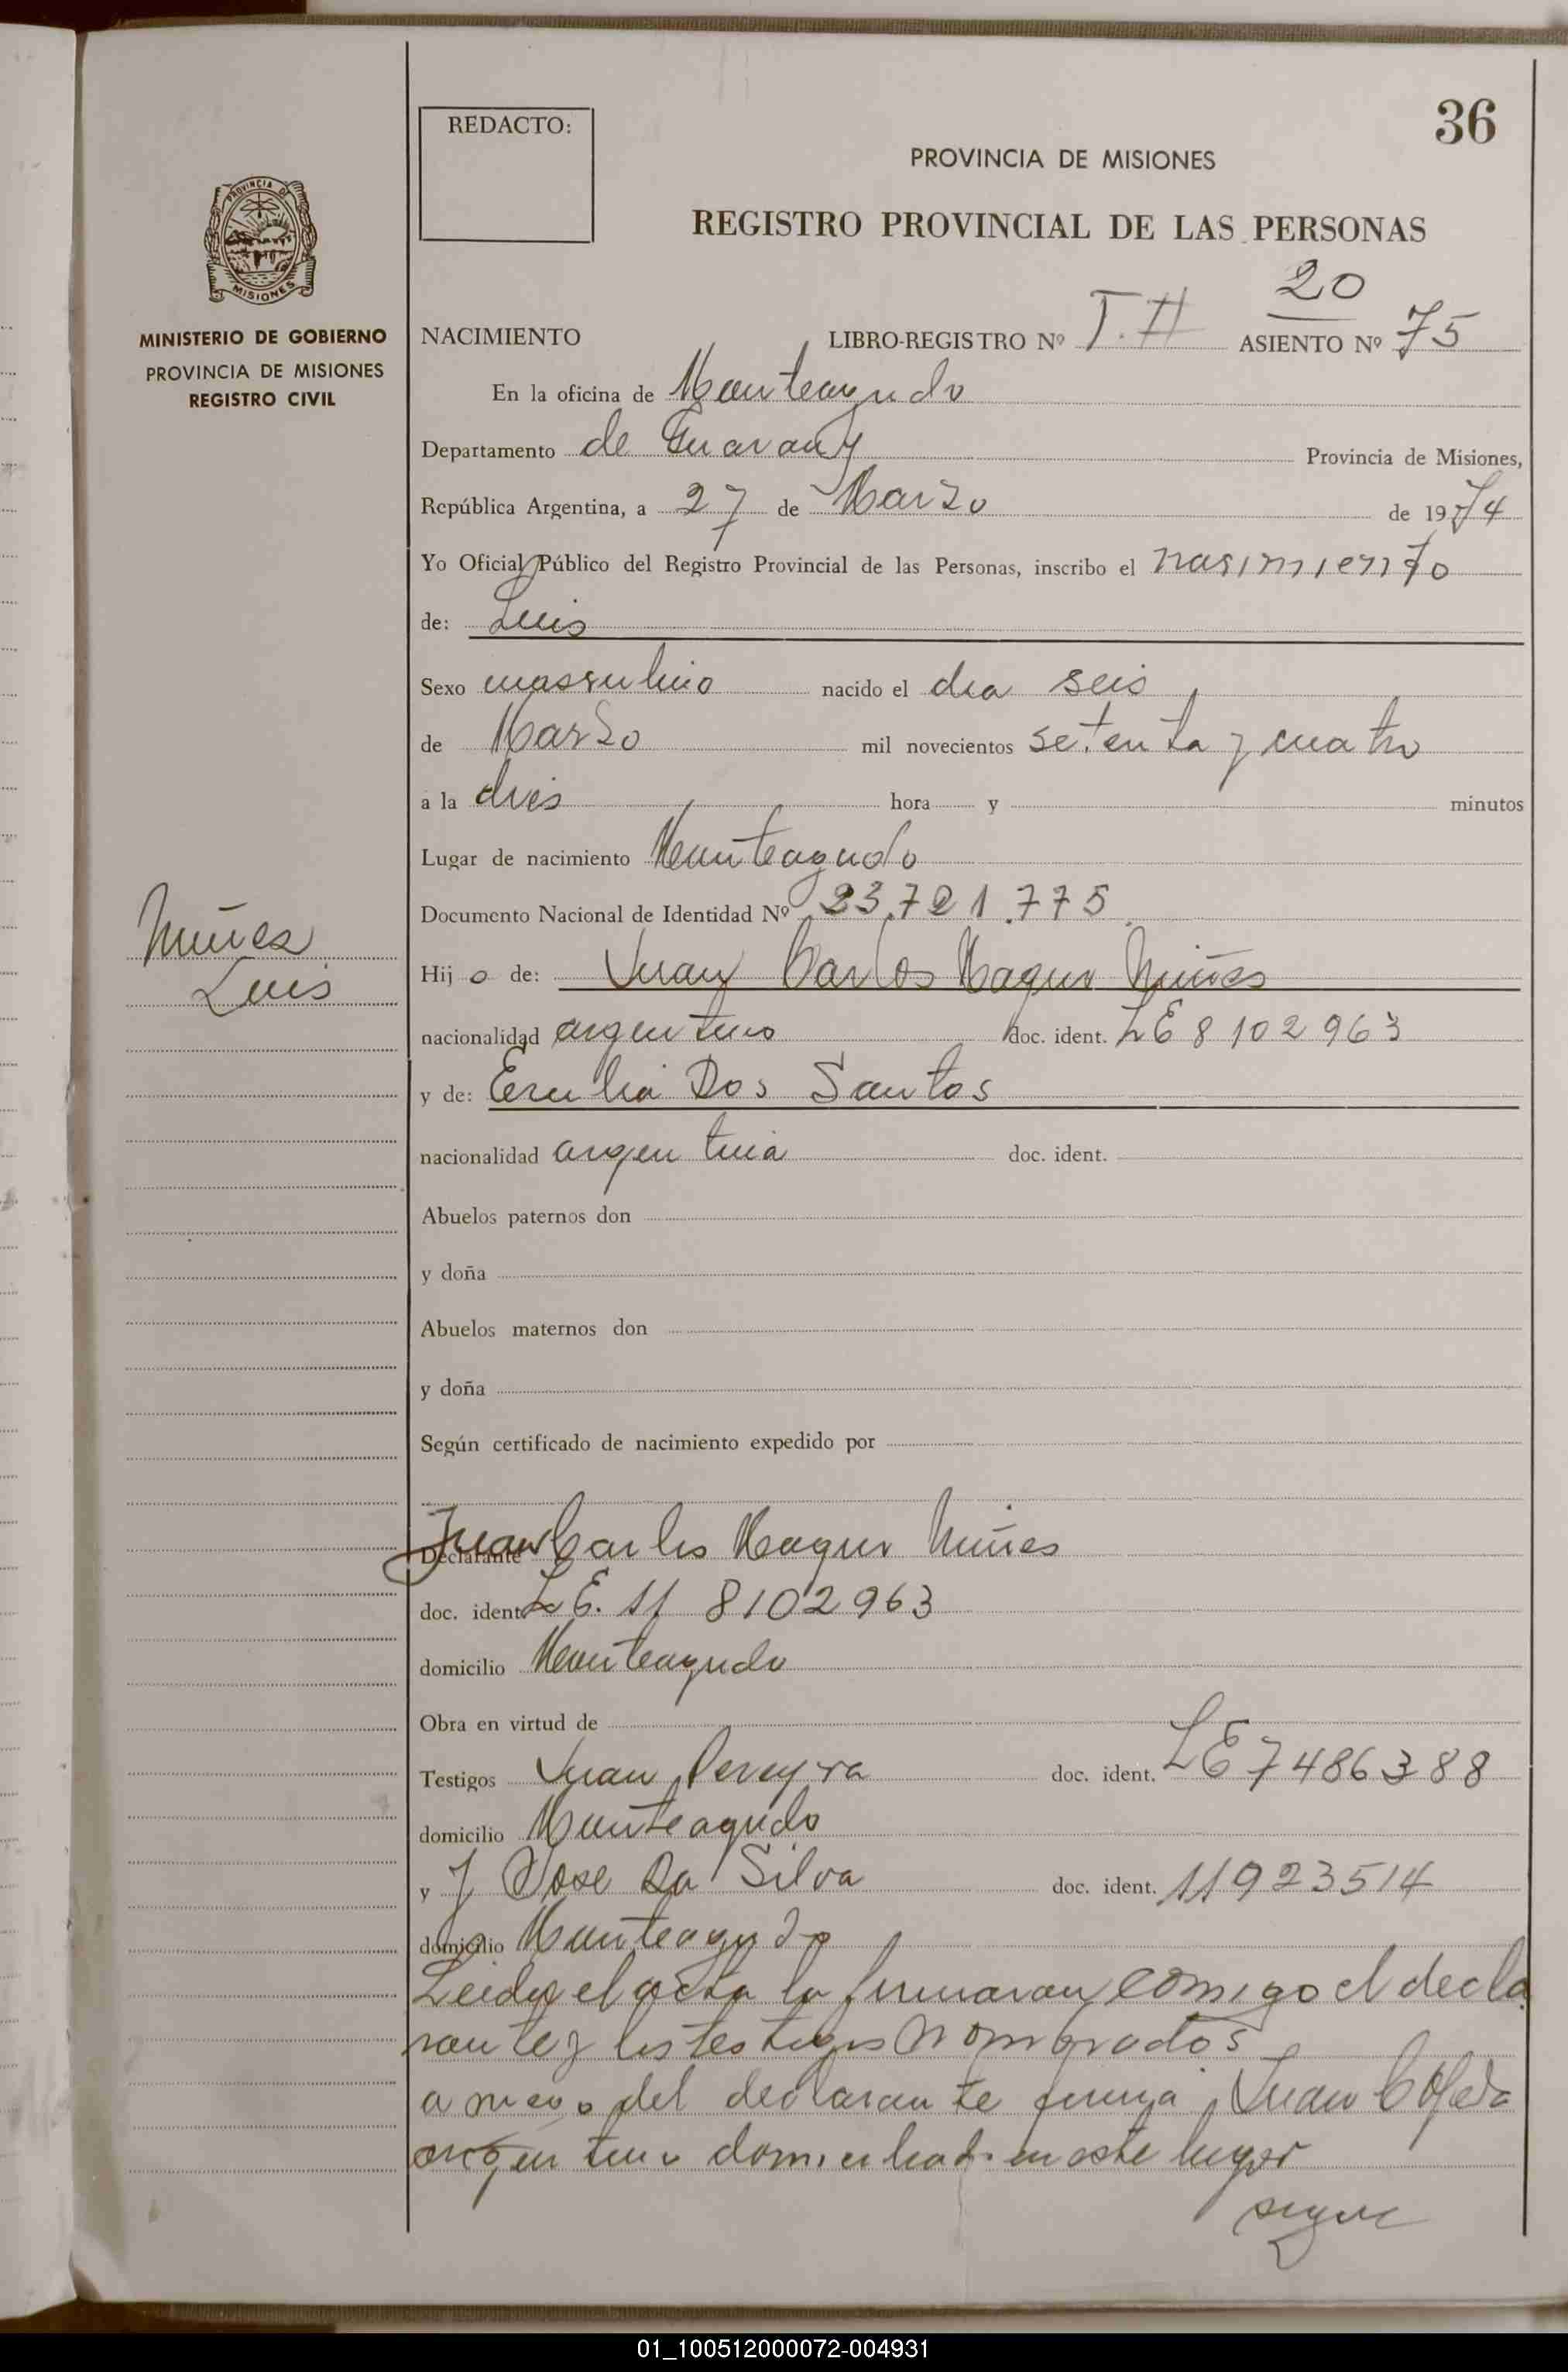 36
REDACTO:
PROVINCIA DE MISIONES
REGISTRO PROVINCIAL DE LAS PERSONAS
PROVINCIA DE
MISIONES
MINISTERIO DE GOBIERNO
PROVINCIA DE MISIONES
REGISTRO CIVIL
20
NACIMIENTO LIBRO-REGISTRO Nº T. II ASIENTO Nº 75
En la oficina de Monteagudo
Departamento de Guarany Provincia de Misiones,
República Argentina, a 27 de Marzo de 1974
Yo Oficial Público del Registro Provincial de las Personas, inscribo el nasimiento
de: Luis
Sexo masculino nacido el dia seis
de Marzo mil novecientos setenta y cuatro
a la dies hora y minutos
Lugar de nacimiento Monteagudo
Documento Nacional de Identidad Nº 23.721.775
Núñes
Luis
Hijo de: Juan Carlos Magno Núñes
nacionalidad argentino doc. ident. LE 8102963
y de: Erulia Dos Santos
nacionalidad argentina doc. ident.
Abuelos paternos don
y doña
Abuelos maternos don
y doña
Según certificado de nacimiento expedido por
Declarante Juan Carlos Nuñes
doc. ident. L.E. 8102963
domicilio Monteagudo
Obra en virtud de
Testigos Juan Pereyra doc. ident. LE 7486388
domicilio Monteagudo
y J Jose Da Silva doc. ident. 11923514
domicilio Monteagudo
Leida el acta la firmaran comigo el decla
rante y los testigos nombrados
a ruego del declarante firma Juan C Ojeda
argentino domiciliado en este lugar
sigue
01_100512000072-004931